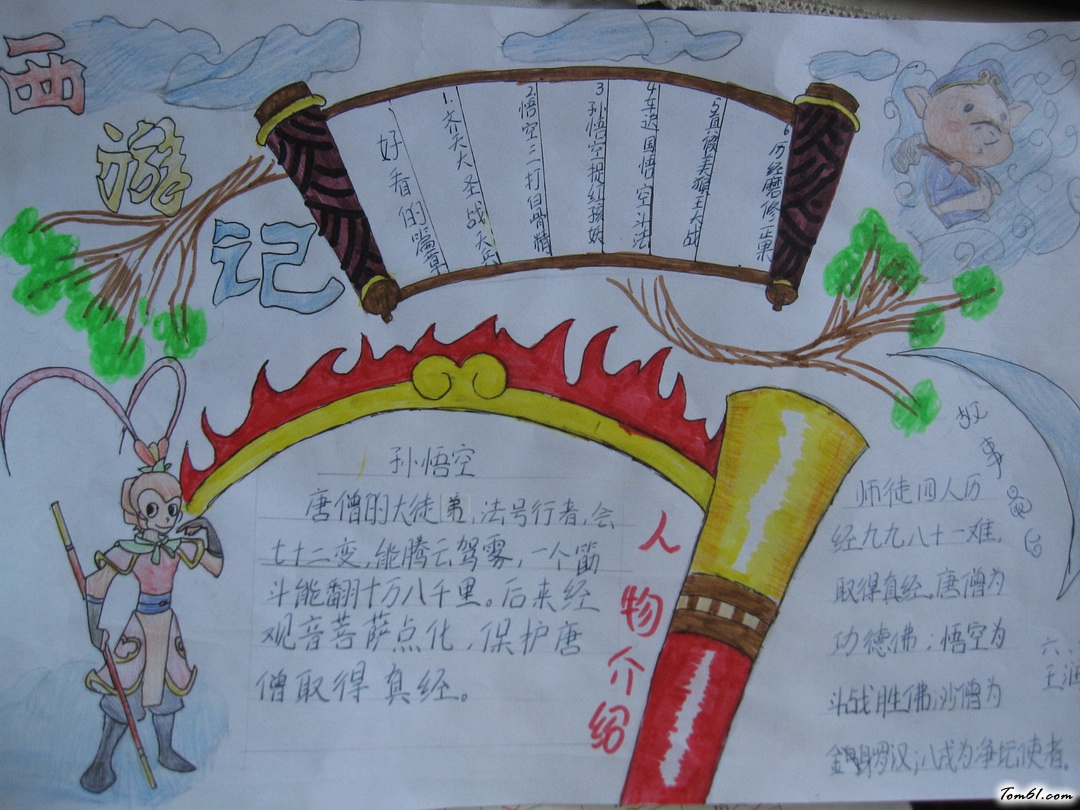 西
游
记
好看的篇章
1.齐天大圣战天兵
2悟空三打白骨精
3孙悟空捉红孩妖
4车迟国悟空斗法
5真假美猴王大战
6历经磨修正果
孙悟空
唐僧的大徒弟,法号行者,会
七十二变,能腾云驾雾,一个筋
斗能翻十万八千里。后来经
观音菩萨点化,保护唐
僧取得真经。
人物介绍
故事
师徒四人历
经九九八十一难,
取得真经。唐僧为
功德佛;悟空为
斗战胜佛;沙僧为
罗汉;八戒为净坛使者。
六、
王
Tom61.com